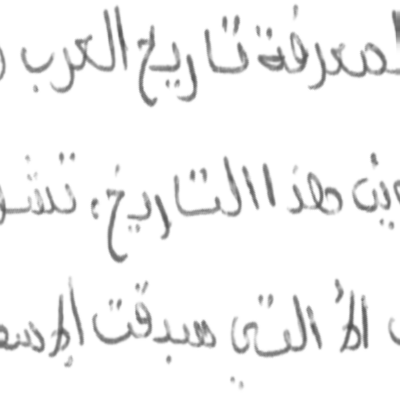 لمعرفة تاريخ العرب
هذا التاريخ، تشو
التي سبقت الإسـ